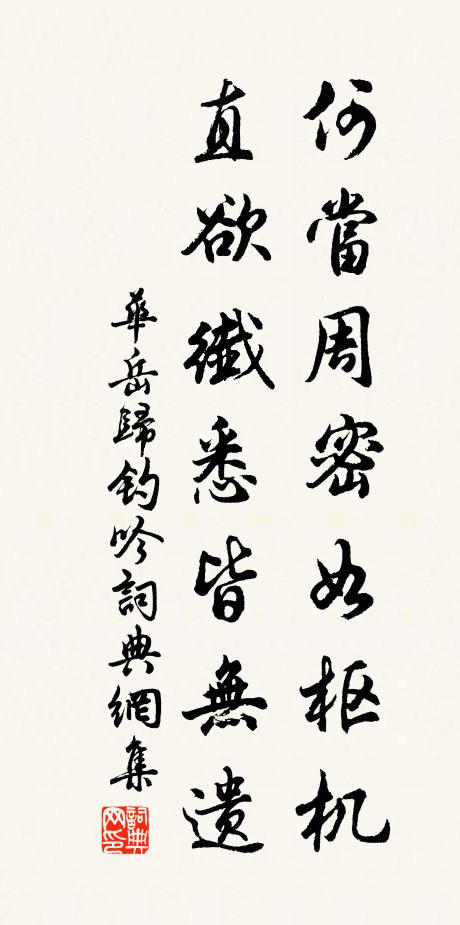 何當周密如枢机
直欲纖悉皆無遺
華岳歸釣吟詞典網集
詞典
网印